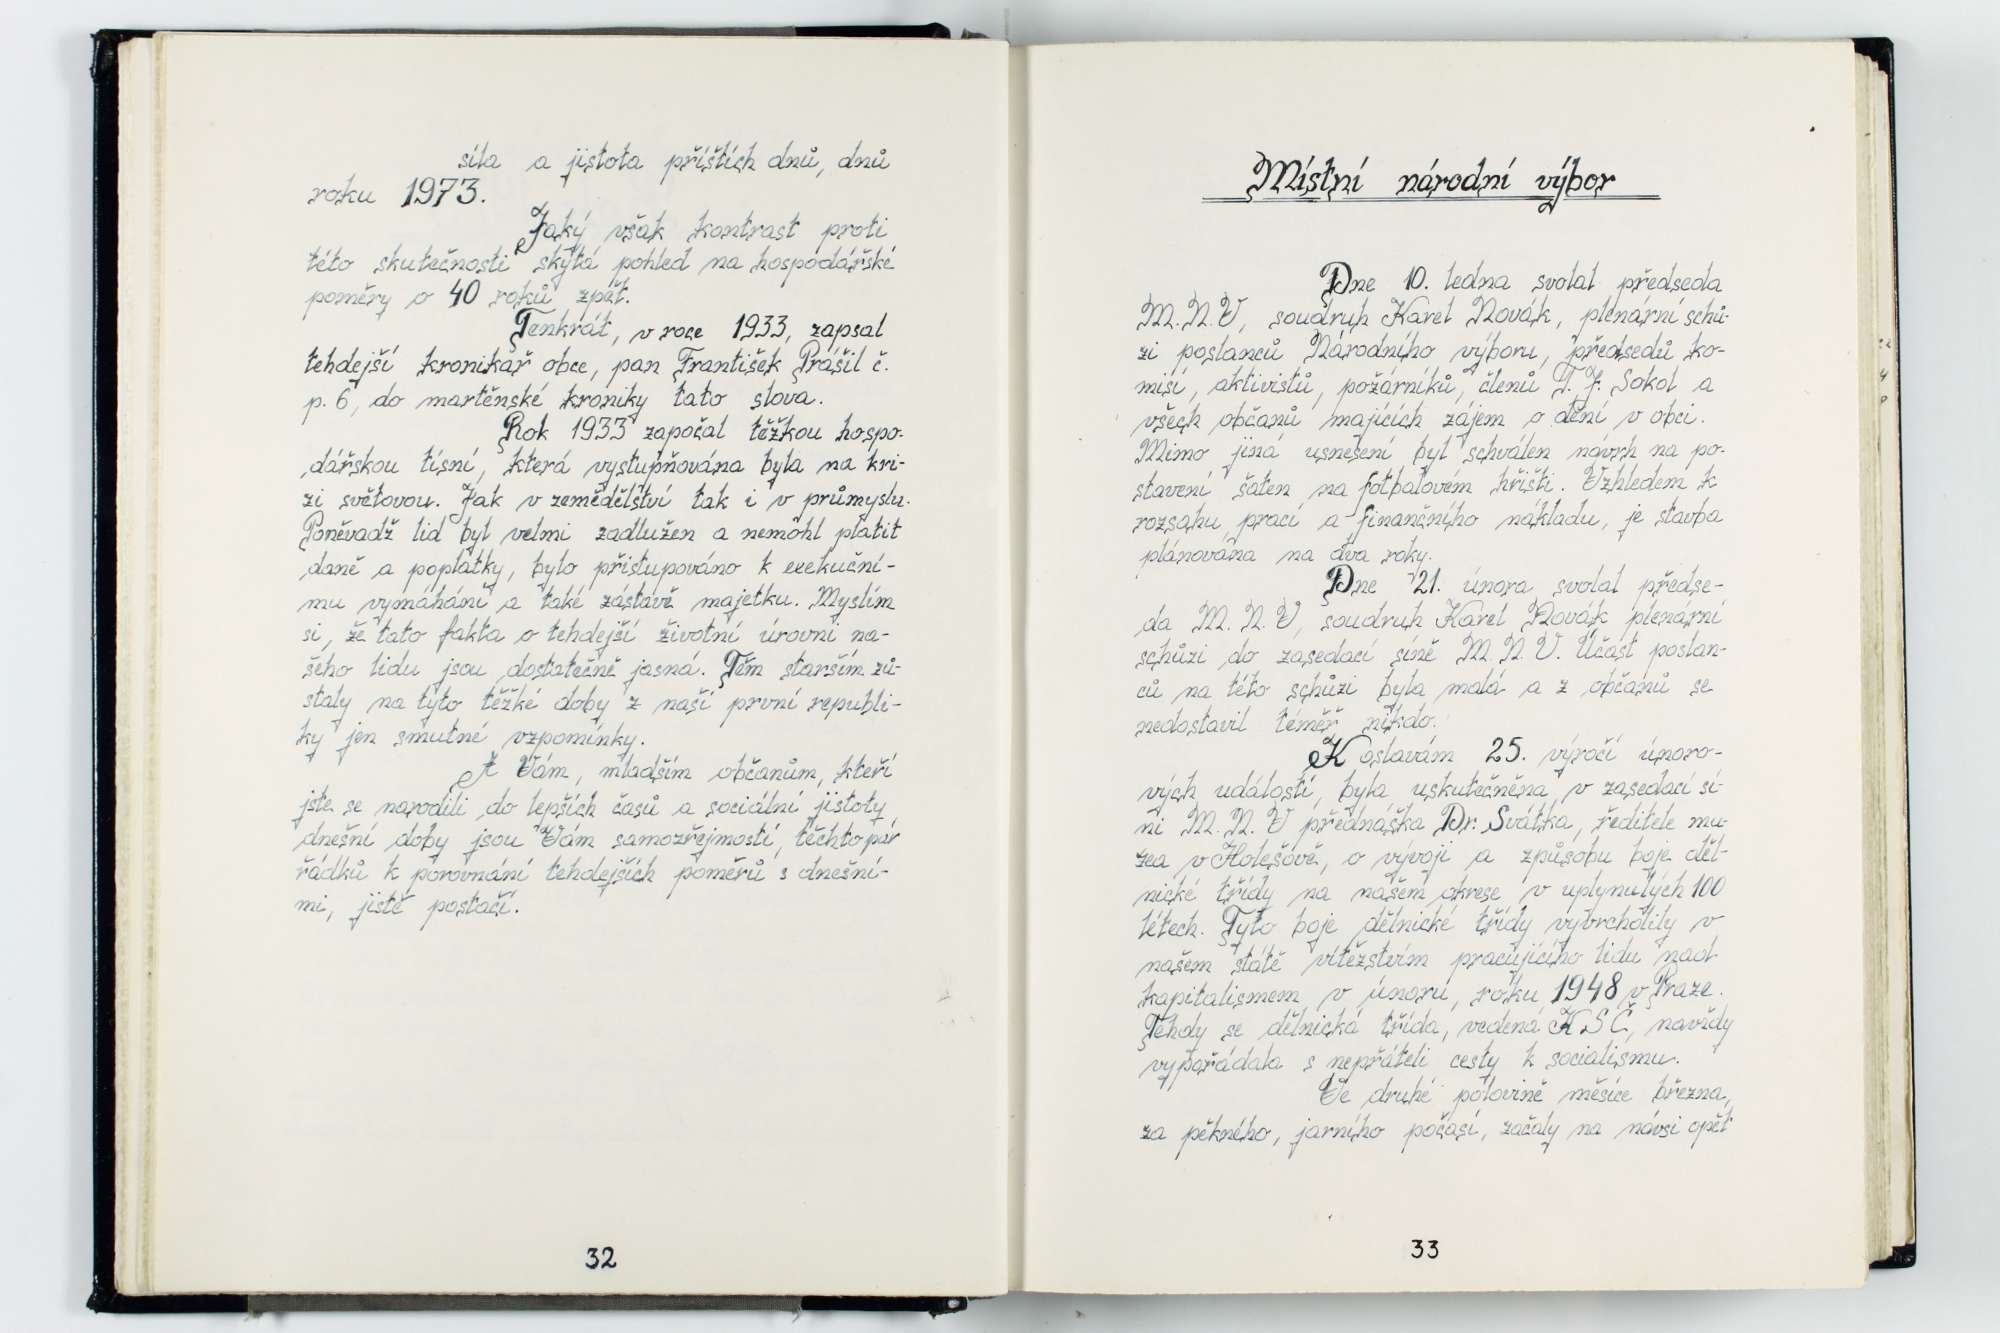 síla a jistota příštích dnů, dnů
roku 1973.
Jaký však kontrast proti
této skutečnosti skýtá pohled na hospodářské
poměry o 40 roků zpět.
Tenkrát, v roce 1933, zapsal
tehdejší kronikář obce, pan František Prášil č.
p. 6, do martěnské kroniky tato slova.
Rok 1933 započal těžkou hospo-
dářskou tísní, která vystupňována byla na kri-
zi světovou. Jak v zemědělství tak i v průmyslu.
Poněvadž lid byl velmi zadlužen a nemohl platit
daně a poplatky, bylo přistupováno k exekuční-
mu vymáhání a také zástavě majetku. Myslím
si, že tato fakta o tehdejší životní úrovni na-
šeho lidu jsou dostatečně jasná. Těm starším zů-
staly na tyto těžké doby z naší první republi-
ky jen smutné vzpomínky.
A Vám, mladším občanům, kteří
jste se narodili do lepších časů a sociální jistoty
dnešní doby jsou Vám samozřejmostí, těchto pár
řádků k porovnání tehdejších poměrů s dnešní-
mi, jistě postačí.
32
Místní národní výbor
Dne 10. ledna svolal předseda
M.N.V, soudruh Karel Novák, plenární schů-
zi poslanců Národního výboru, předsedů ko-
misí, aktivistů, požárníků, členů T.J. Sokol a
všech občanů majících zájem o dění v obci.
Mimo jiná usnesení byl schválen návrh na po-
stavení šaten na fotbalovém hřišti. Vzhledem k
rozsahu prací a finančního nákladu, je stavba
plánována na dva roky.
Dne 21. února svolal předse-
da M.N.V, soudruh Karel Novák plenární
schůzi do zasedací síně M.N.V. Účast poslan-
ců na této schůzi byla malá a z občanů se
nedostavil téměř nikdo.
K oslavám 25. výročí únoro-
vých událostí, byla uskutečněna, v zasedací sí-
ni M.N.V přednáška Dr. Svátka, ředitele mu-
zea v Holešově, o vývoji a způsobu boje děl-
nické třídy na našem okrese v uplynulých 100
létech. Tyto boje dělnické třídy vyvrcholily v
našem státě vítězstvím pracujícího lidu nad
kapitalismem v únoru, roku 1948 v Praze.
Tehdy se dělnická třída, vedená KSČ, navždy
vypořádala s nepřáteli cesty k socialismu.
Ve druhé polovině měsíce března,
za pěkného, jarního počasí, začaly na návsi opět
33